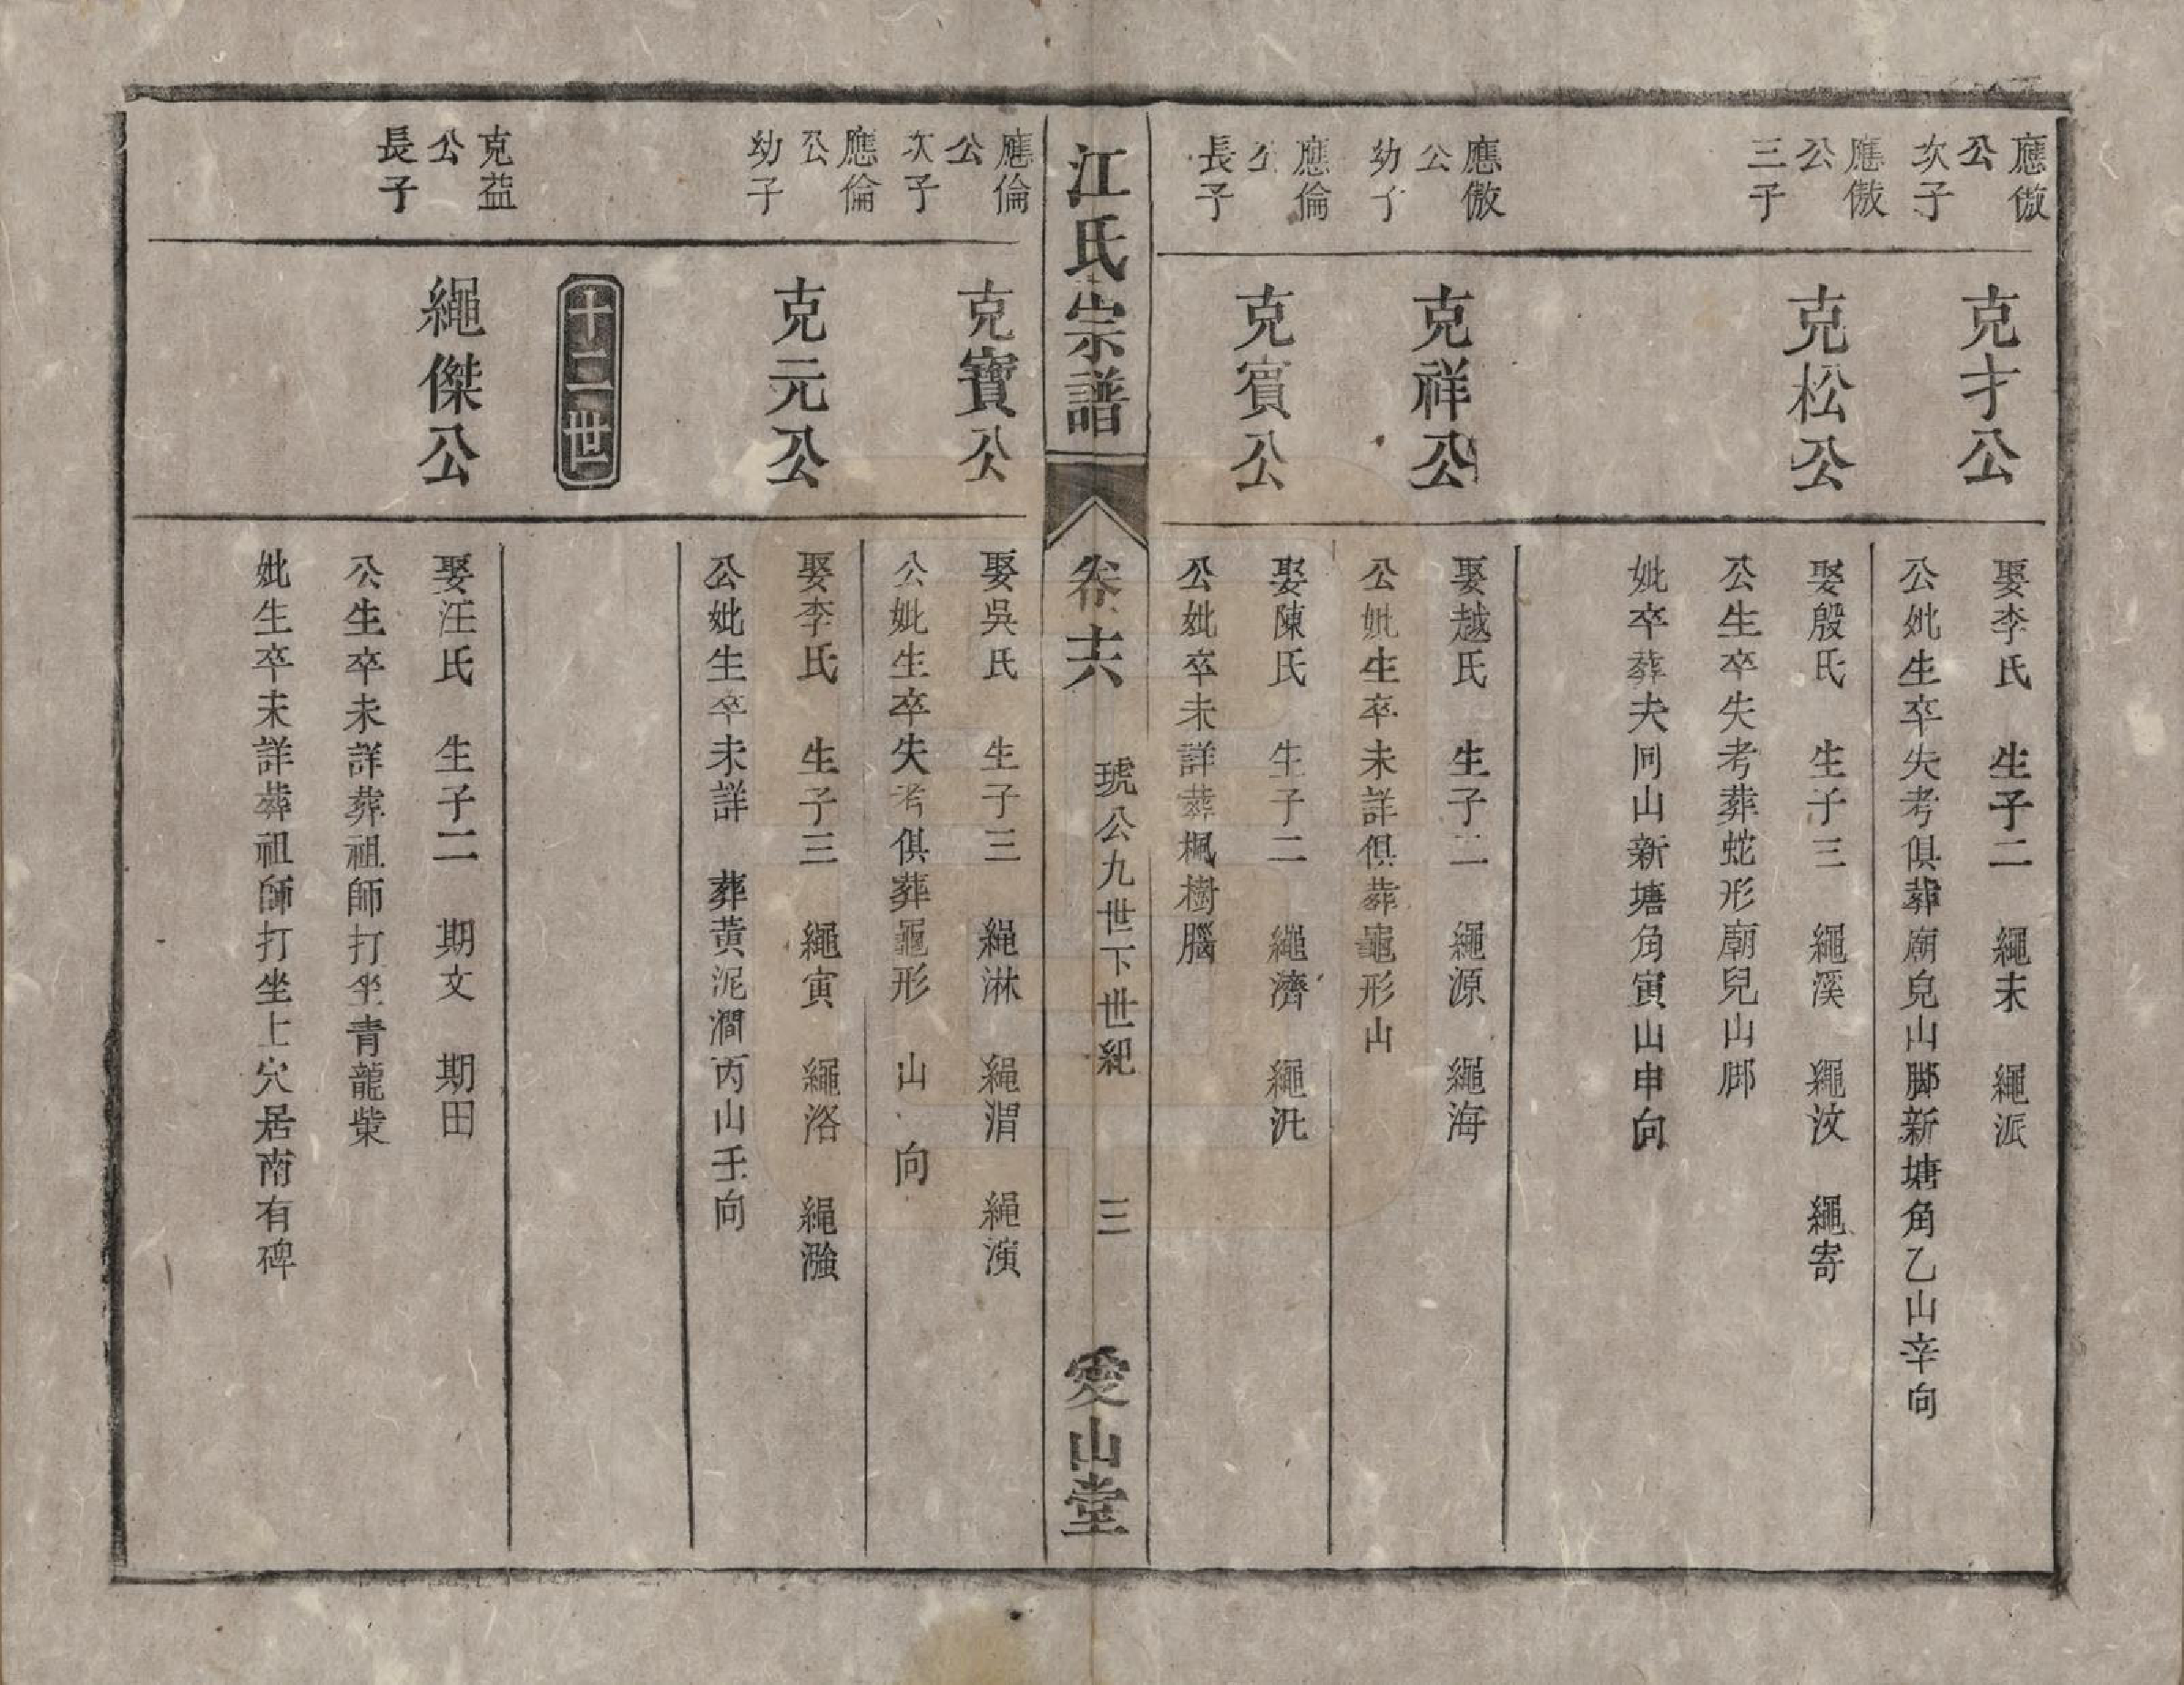 應傲公次子
克才公
娶李氏　生子二　繩末　繩派
公妣生卒失考俱葬廟皃山脚新塘角乙山辛向
應傲公三子
克松公
娶殷氏　生子三　繩溪　繩汶　繩寄
公生卒失考葬蛇形廟兒山脚
妣卒葬夫同山新塘角寅山申向
應傲公幼子
克祥公
娶越氏　生子二　繩源　繩海
公妣生卒未詳俱葬龜形山
應倫公長子
克賓公
娶陳氏　生子二　繩濟　繩沘
公妣卒未詳葬楓樹腦
江氏宗譜
卷六
琥公九世下世紀
三
愛山堂
應倫公次子
克寶公
娶吳氏　生子三　繩淋　繩渭　繩演
公妣生卒失考俱葬龜形　山　向
應倫公幼子
克元公
娶李氏　生子三　繩寅　繩洛　繩漒
公妣生卒未詳　葬黃泥澗丙山壬向
十二世
克益公長子
繩傑公
娶汪氏　生子二　期文　期田
公生卒未詳葬祖師打坐青龍柴
妣生卒未詳葬祖師打坐上穴居南有碑